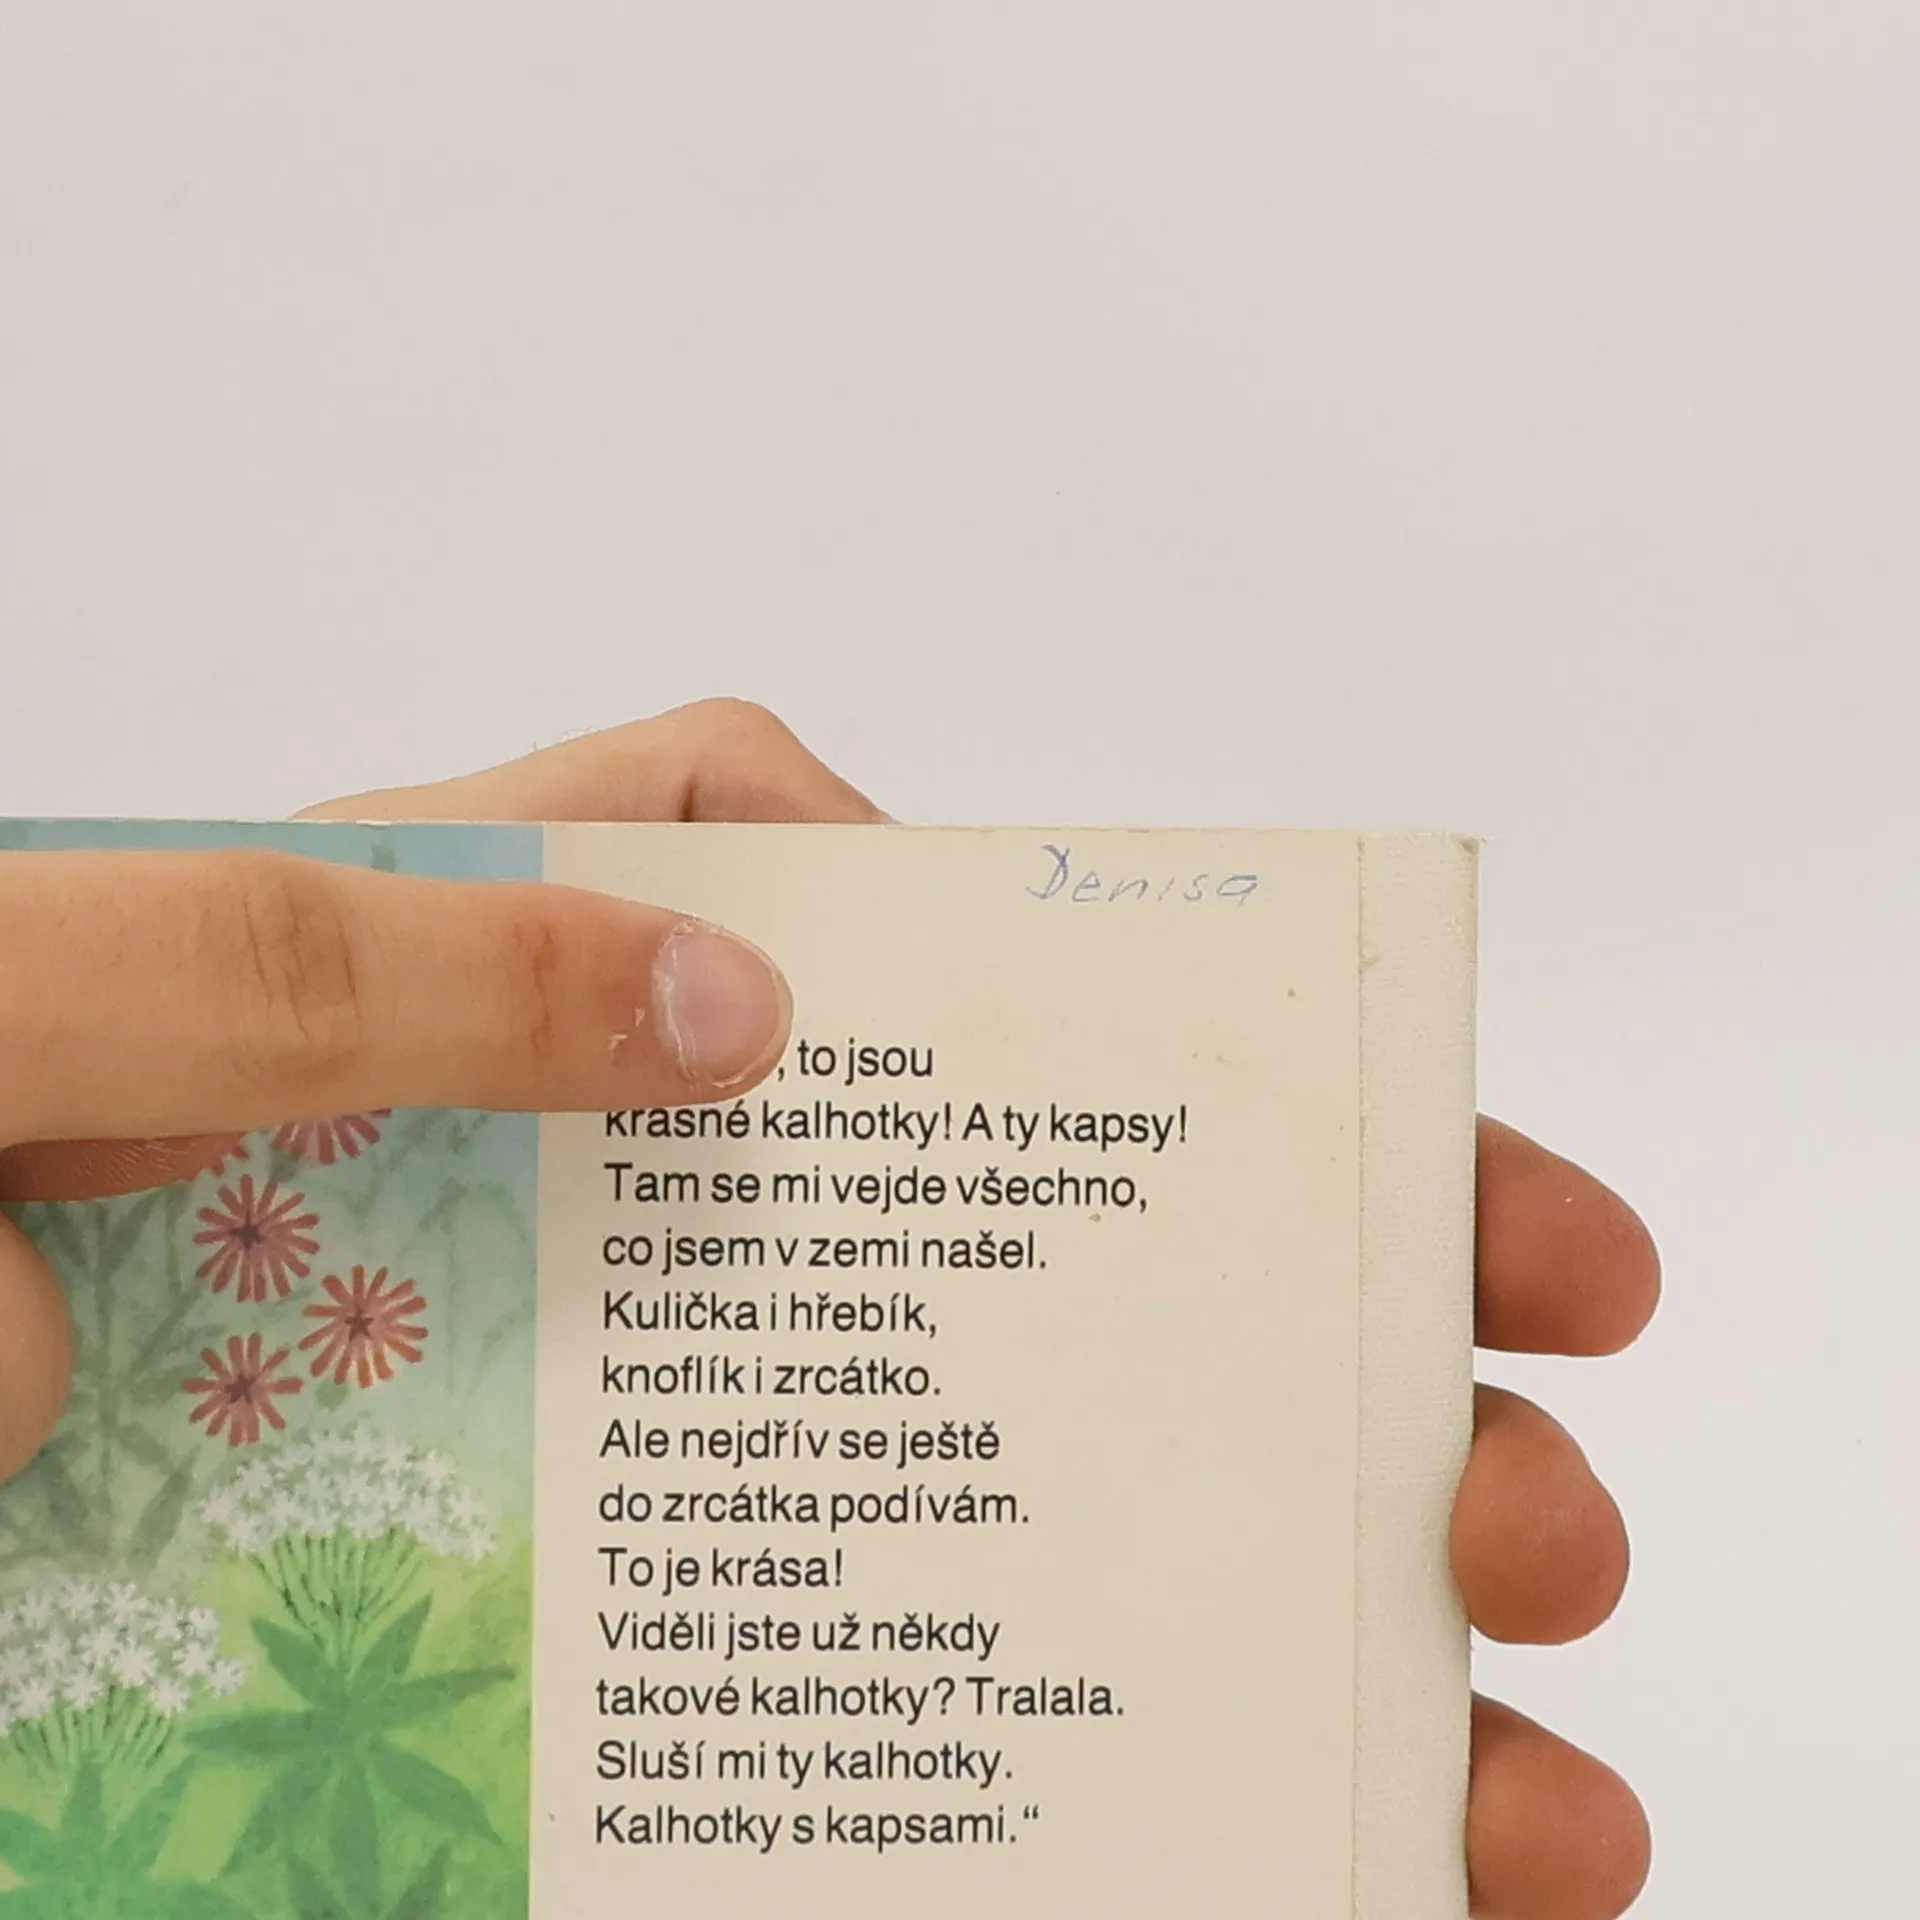 Denisa
, to jsou
krásné kalhotky! A ty kapsy!
Tam se mi vejde všechno,
co jsem v zemi našel.
Kulička i hřebík,
knoflík i zrcátko.
Ale nejdřív se ještě
do zrcátka podívám.
To je krása!
Viděli jste už někdy
takové kalhotky? Tralala.
Sluší mi ty kalhotky.
Kalhotky s kapsami.“